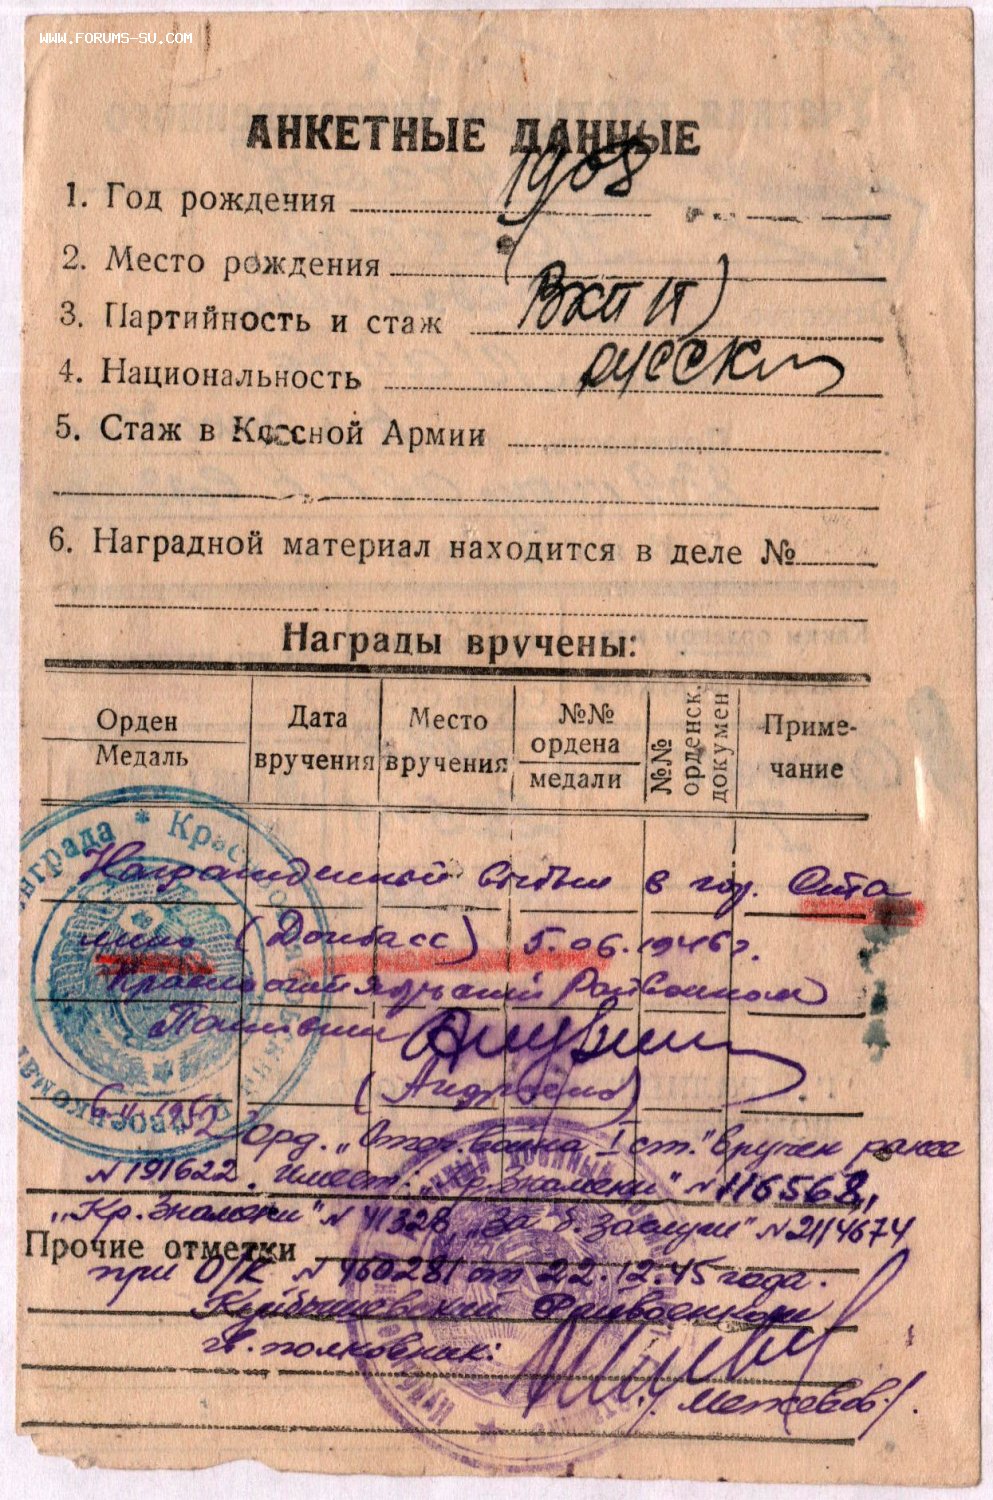 WWW.FORUMS-SU.COM
АНКЕТНЫЕ ДАННЫЕ
1. Год рождения 1908
2. Место рождения
3. Партийность и стаж
4. Национальность русский
5. Стаж в Красной Армии
6. Наградной материал находится в деле №
Награды вручены:
Орден
Медаль
Дата вручения
Место вручения
№№ ордена
медали
№№ орденск. докумен
Приме-
чание
Награжденный выбыл в гор. Ста
лино (Донбасс) 5.06.1946г.
Райвоенком
6 1952 Орд. "Отеч. война I ст." вручен ранее
N 191622. Имеет: "Кр. Знамени" N 116568,
"Кр. Знамени" N 41328, "За б. Заслуги" N 2114674
Прочие отметки
при О/К N 460281 от 22.12.45 года.
Куйбышевский Райвоенком
гв. полковник:
/Межевов/.